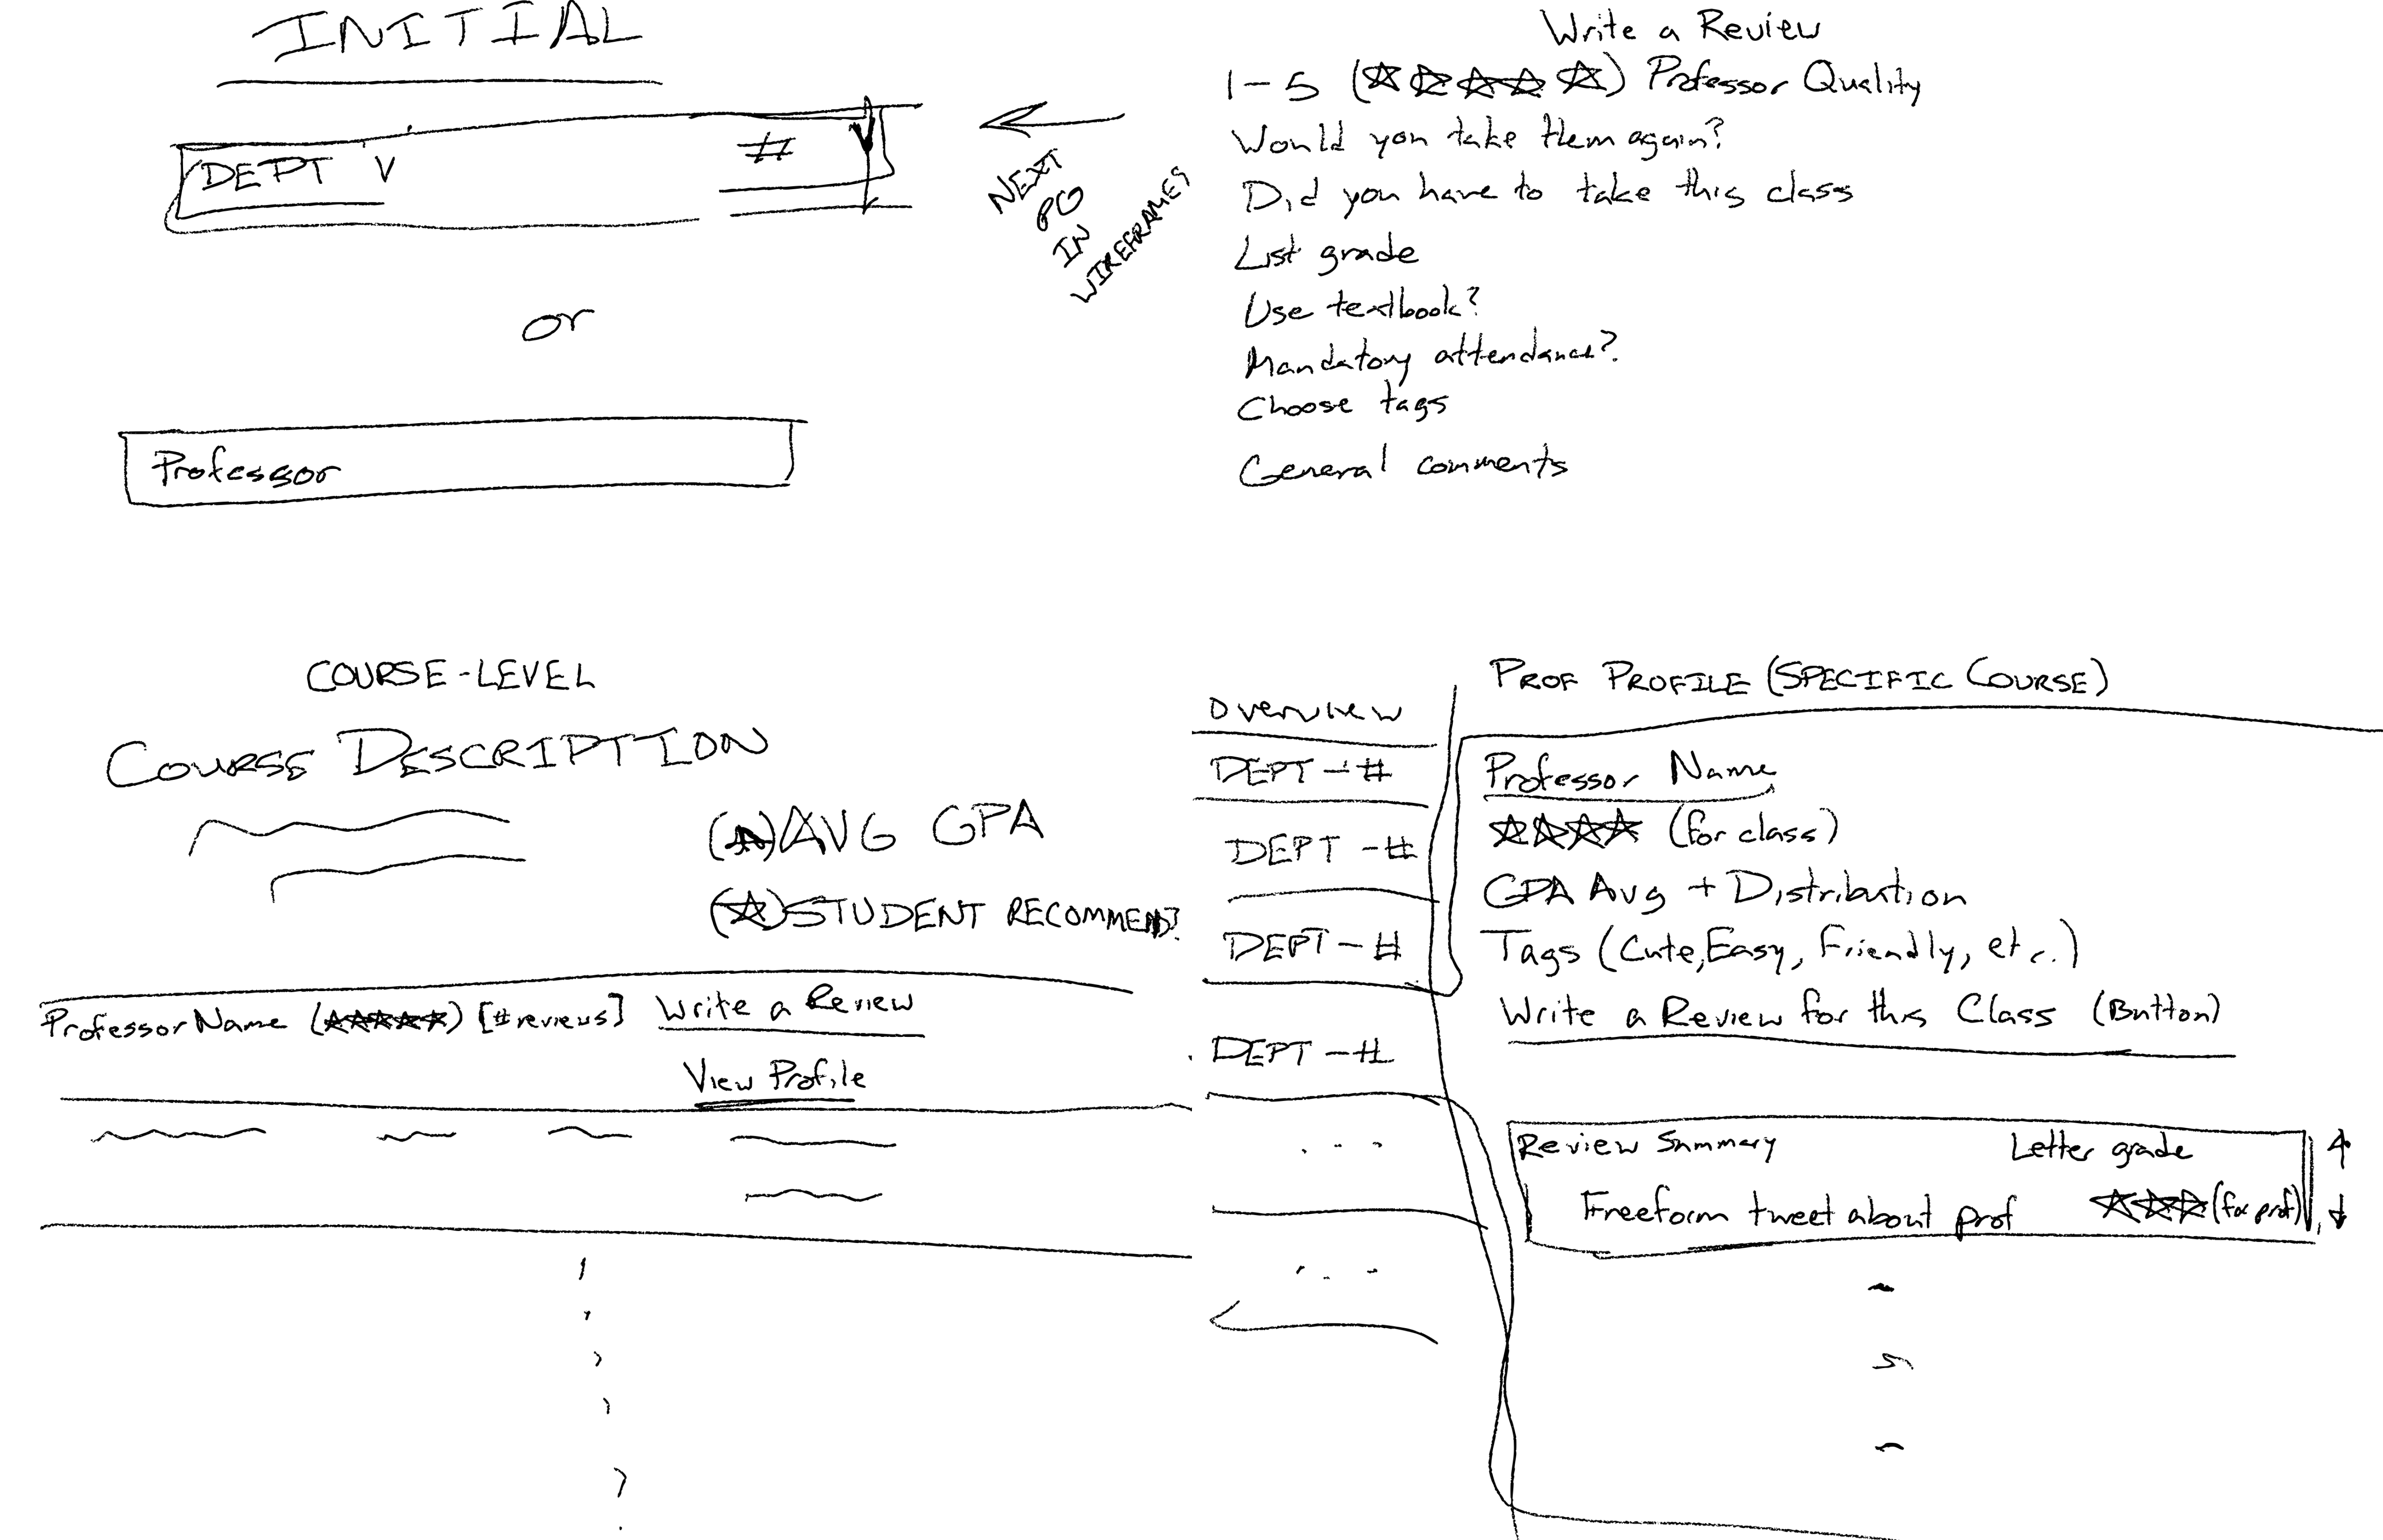 INITIAL
DEPT V #
or
Professor
NEXT
PG
IN
WIREFRAMES
Write a Review
1-5 (☆☆☆☆☆) Professor Quality
Would you take them again?
Did you have to take this class
List grade
Use textbook?
Mandatory attendance?
Choose tags
General comments
COURSE-LEVEL
COURSE DESCRIPTION
AVG GPA
(☆) STUDENT RECOMMEND?
Professor Name (☆☆☆☆☆) [# reviews] Write a Review
View Profile
Overview
DEPT-#
DEPT-#
DEPT-#
DEPT-#
...
...
PROF PROFILE (SPECIFIC COURSE)
Professor Name
☆☆☆☆ (for class)
GPA Avg + Distribution
Tags (Cute, Easy, Friendly, etc.)
Write a Review for this Class (Button)
Review Summary Letter grade
Freeform tweet about prof ☆☆☆ (for prof)